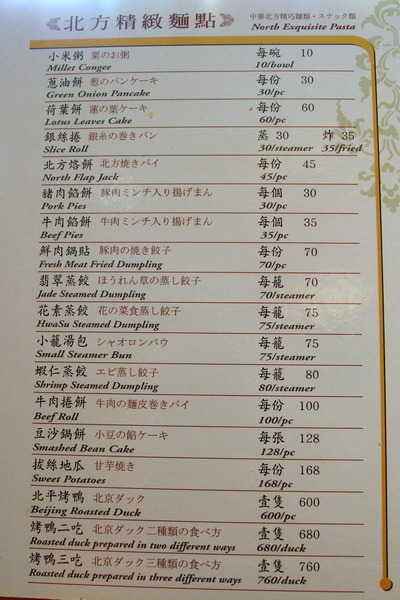 北方精緻麵點
中華北方精巧麺類・スナック類
North Exquisite Pasta
小米粥 粟のお粥 每碗 10
Millet Congee 10/bowl
蔥油餅 葱のパンケーキ 每份 30
Green Onion Pancake 30/pc
荷葉餅 蓮の葉ケーキ 每份 60
Lotus Leaves Cake 60/pc
銀絲捲 銀糸の巻きパン 蒸 30 炸 35
Slice Roll 30/steamer 35/fried
北方烙餅 北方焼きパイ 每份 45
North Flap Jack 45/pc
豬肉餡餅 豚肉ミンチ入り揚げまん 每個 30
Pork Pies 30/pc
牛肉餡餅 牛肉ミンチ入り揚げまん 每個 35
Beef Pies 35/pc
鮮肉鍋貼 豚肉の焼き餃子 每份 70
Fresh Meat Fried Dumpling 70/pc
翡翠蒸餃 ほうれん草の蒸し餃子 每籠 70
Jade Steamed Dumpling 70/steamer
花素蒸餃 花の菜食蒸し餃子 每籠 75
HwaSu Steamed Dumpling 75/steamer
小籠湯包 シャオロンバウ 每籠 75
Small Steamer Bun 75/steamer
蝦仁蒸餃 エビ蒸し餃子 每籠 80
Shrimp Steamed Dumpling 80/steamer
牛肉捲餅 牛肉の麺皮巻きパイ 每份 100
Beef Roll 100/pc
豆沙鍋餅 小豆の餡ケーキ 每張 128
Smashed Bean Cake 128/pc
拔絲地瓜 甘芋焼き 每份 168
Sweet Potatoes 168/pc
北平烤鴨 北京ダック 壹隻 600
Beijing Roasted Duck 600/pc
烤鴨二吃 北京ダック二種類の食べ方 壹隻 680
Roasted duck prepared in two different ways 680/duck
烤鴨三吃 北京ダック三種類の食べ方 壹隻 760
Roasted duck prepared in three different ways 760/duck